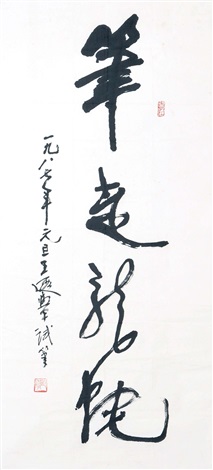 筆走龍蛇
一九八七年元旦王遐舉試筆